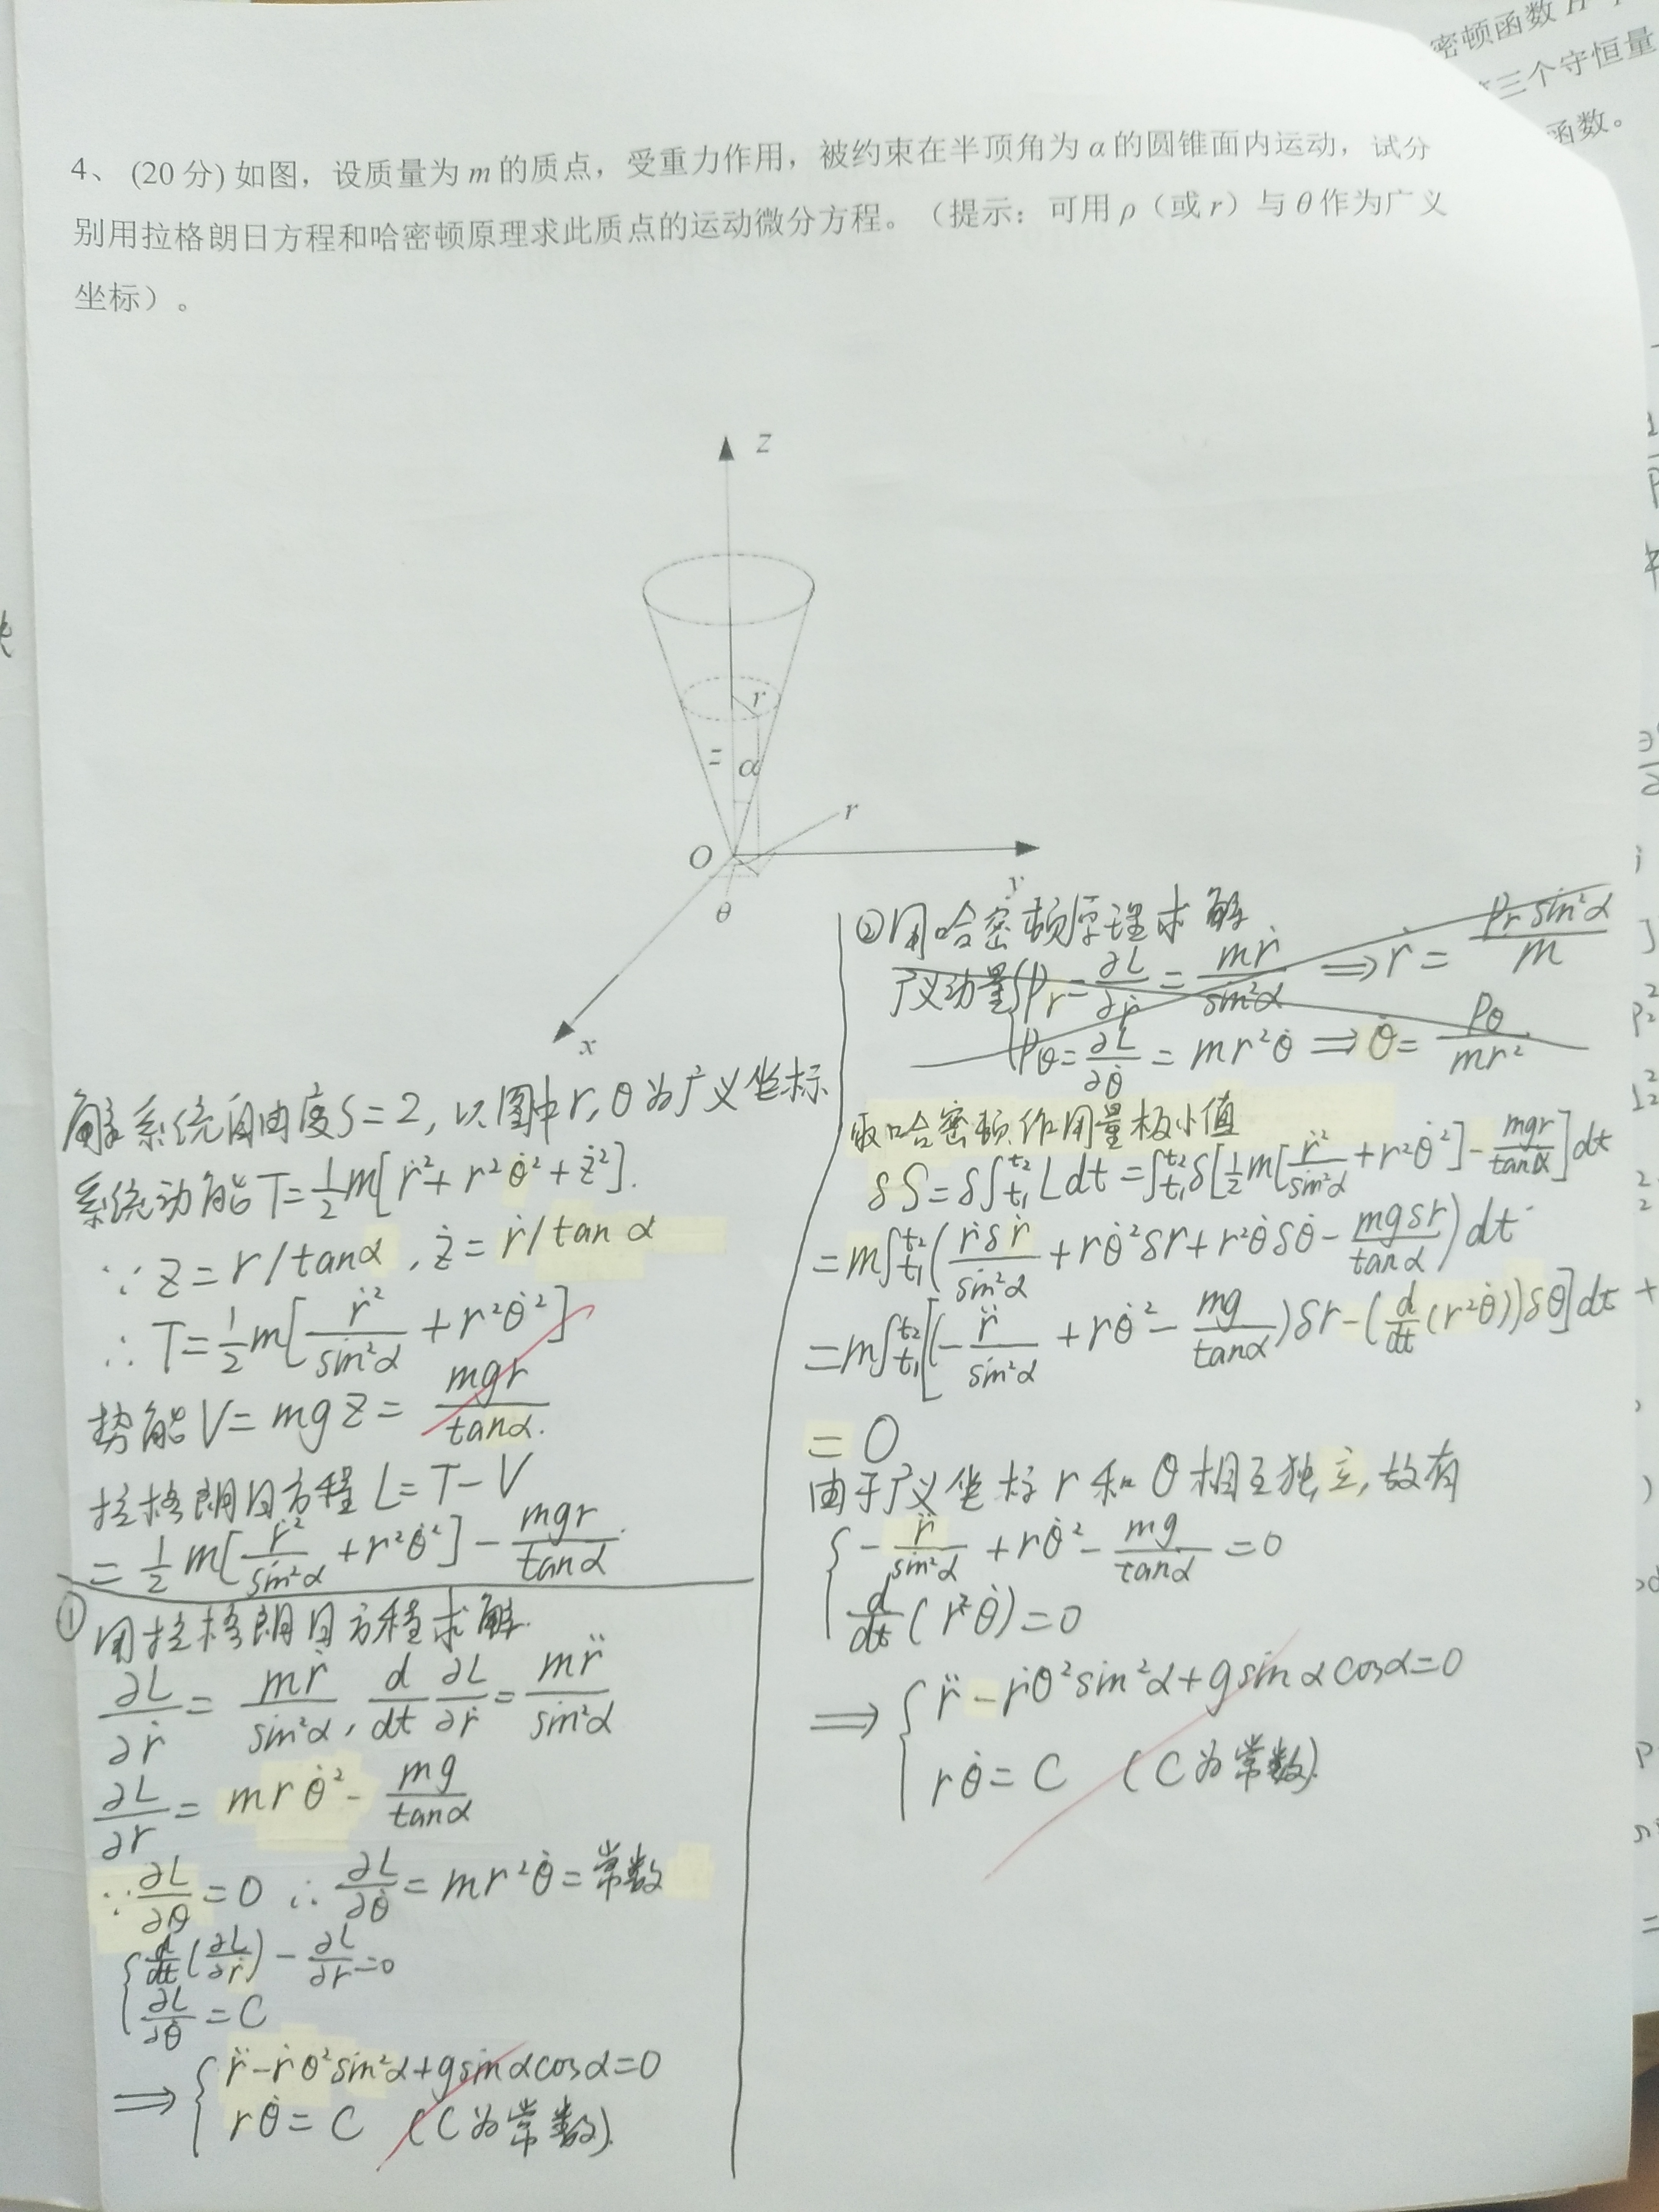 密顿函数 H
三个守恒量
函数。
4、 (20 分) 如图，设质量为 m 的质点，受重力作用，被约束在半顶角为 α 的圆锥面内运动，试分
别用拉格朗日方程和哈密顿原理求此质点的运动微分方程。（提示：可用 ρ（或 r）与 θ 作为广义
坐标）。
z
r
z α
r
O
y
θ
x
解 系统自由度S=2, 以图中r, θ为广义坐标
系统动能T=½m[ṙ²+r²θ̇²+ż²].
∵ z=r/tanα, ż=ṙ/tanα
∴ T=½m[ṙ²/sin²α + r²θ̇²]
势能V=mgz= mgr/tanα.
拉格朗日方程 L=T-V
= ½m[ṙ²/sin²α + r²θ̇²] - mgr/tanα.
① 用拉格朗日方程求解.
∂L/∂ṙ = mṙ/sin²α, d/dt ∂L/∂ṙ = mr̈/sin²α
∂L/∂r = mrθ̇² - mg/tanα
∵ ∂L/∂θ = 0 ∴ ∂L/∂θ̇ = mr²θ̇ = 常数
{ d/dt(∂L/∂ṙ) - ∂L/∂r = 0
∂L/∂θ̇ = C
⟹ { r̈ - ṙθ²sin²α + gsinαcosα = 0
rθ̇ = C (C为常数).
②用哈密顿原理求解
广义动量{ Pr = ∂L/∂ṙ = mṙ/sin²α ⟹ ṙ = Pr sin²α/m
Pθ = ∂L/∂θ̇ = mr²θ̇ ⟹ θ̇ = Pθ/mr²
取哈密顿作用量极小值
δS = δ∫t₁^t₂ Ldt = ∫t₁^t₂ δ[½m[ṙ²/sin²α + r²θ̇²] - mgr/tanα]dt
= m∫t₁^t₂ (ṙδṙ/sin²α + rθ̇²δr + r²θ̇δθ̇ - mgδr/tanα)dt
= m∫t₁^t₂ [(-r̈/sin²α + rθ̇² - mg/tanα)δr - (d/dt(r²θ̇))δθ]dt +
= 0
由于广义坐标 r 和 θ 相互独立, 故有
{ -r̈/sin²α + rθ̇² - mg/tanα = 0
d/dt(r²θ̇) = 0
⟹ { r̈ - ṙθ²sin²α + gsinαcosα = 0
rθ̇ = C (C为常数).